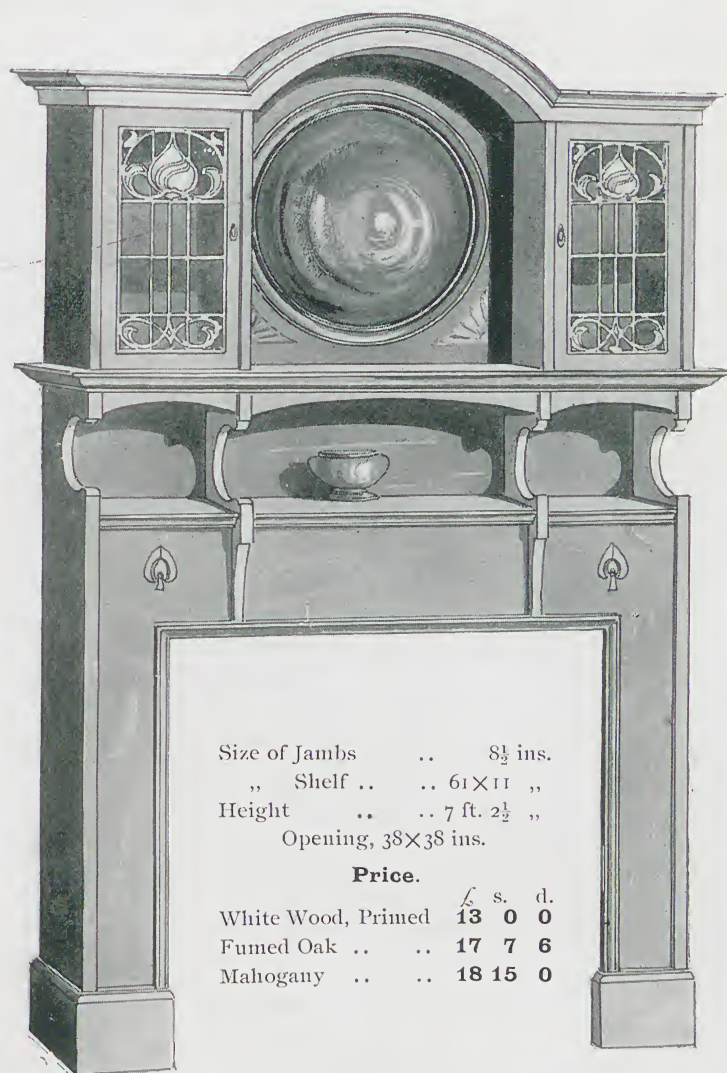 Size of Jambs .. 8½ ins.
„ Shelf .. .. 61×11 „
Height .. .. 7 ft. 2½ „
Opening, 38×38 ins.
Price.
£ s. d.
White Wood, Primed 13 0 0
Fumed Oak .. .. 17 7 6
Mahogany .. .. 18 15 0